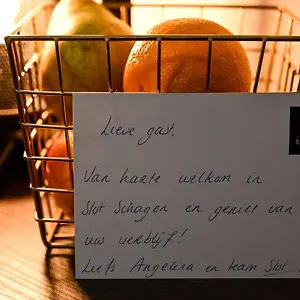 Lieve gast,
Van harte welkom in
Slot Schagen en geniet van
uw verblijf!
Liefs Angelina en team Slot